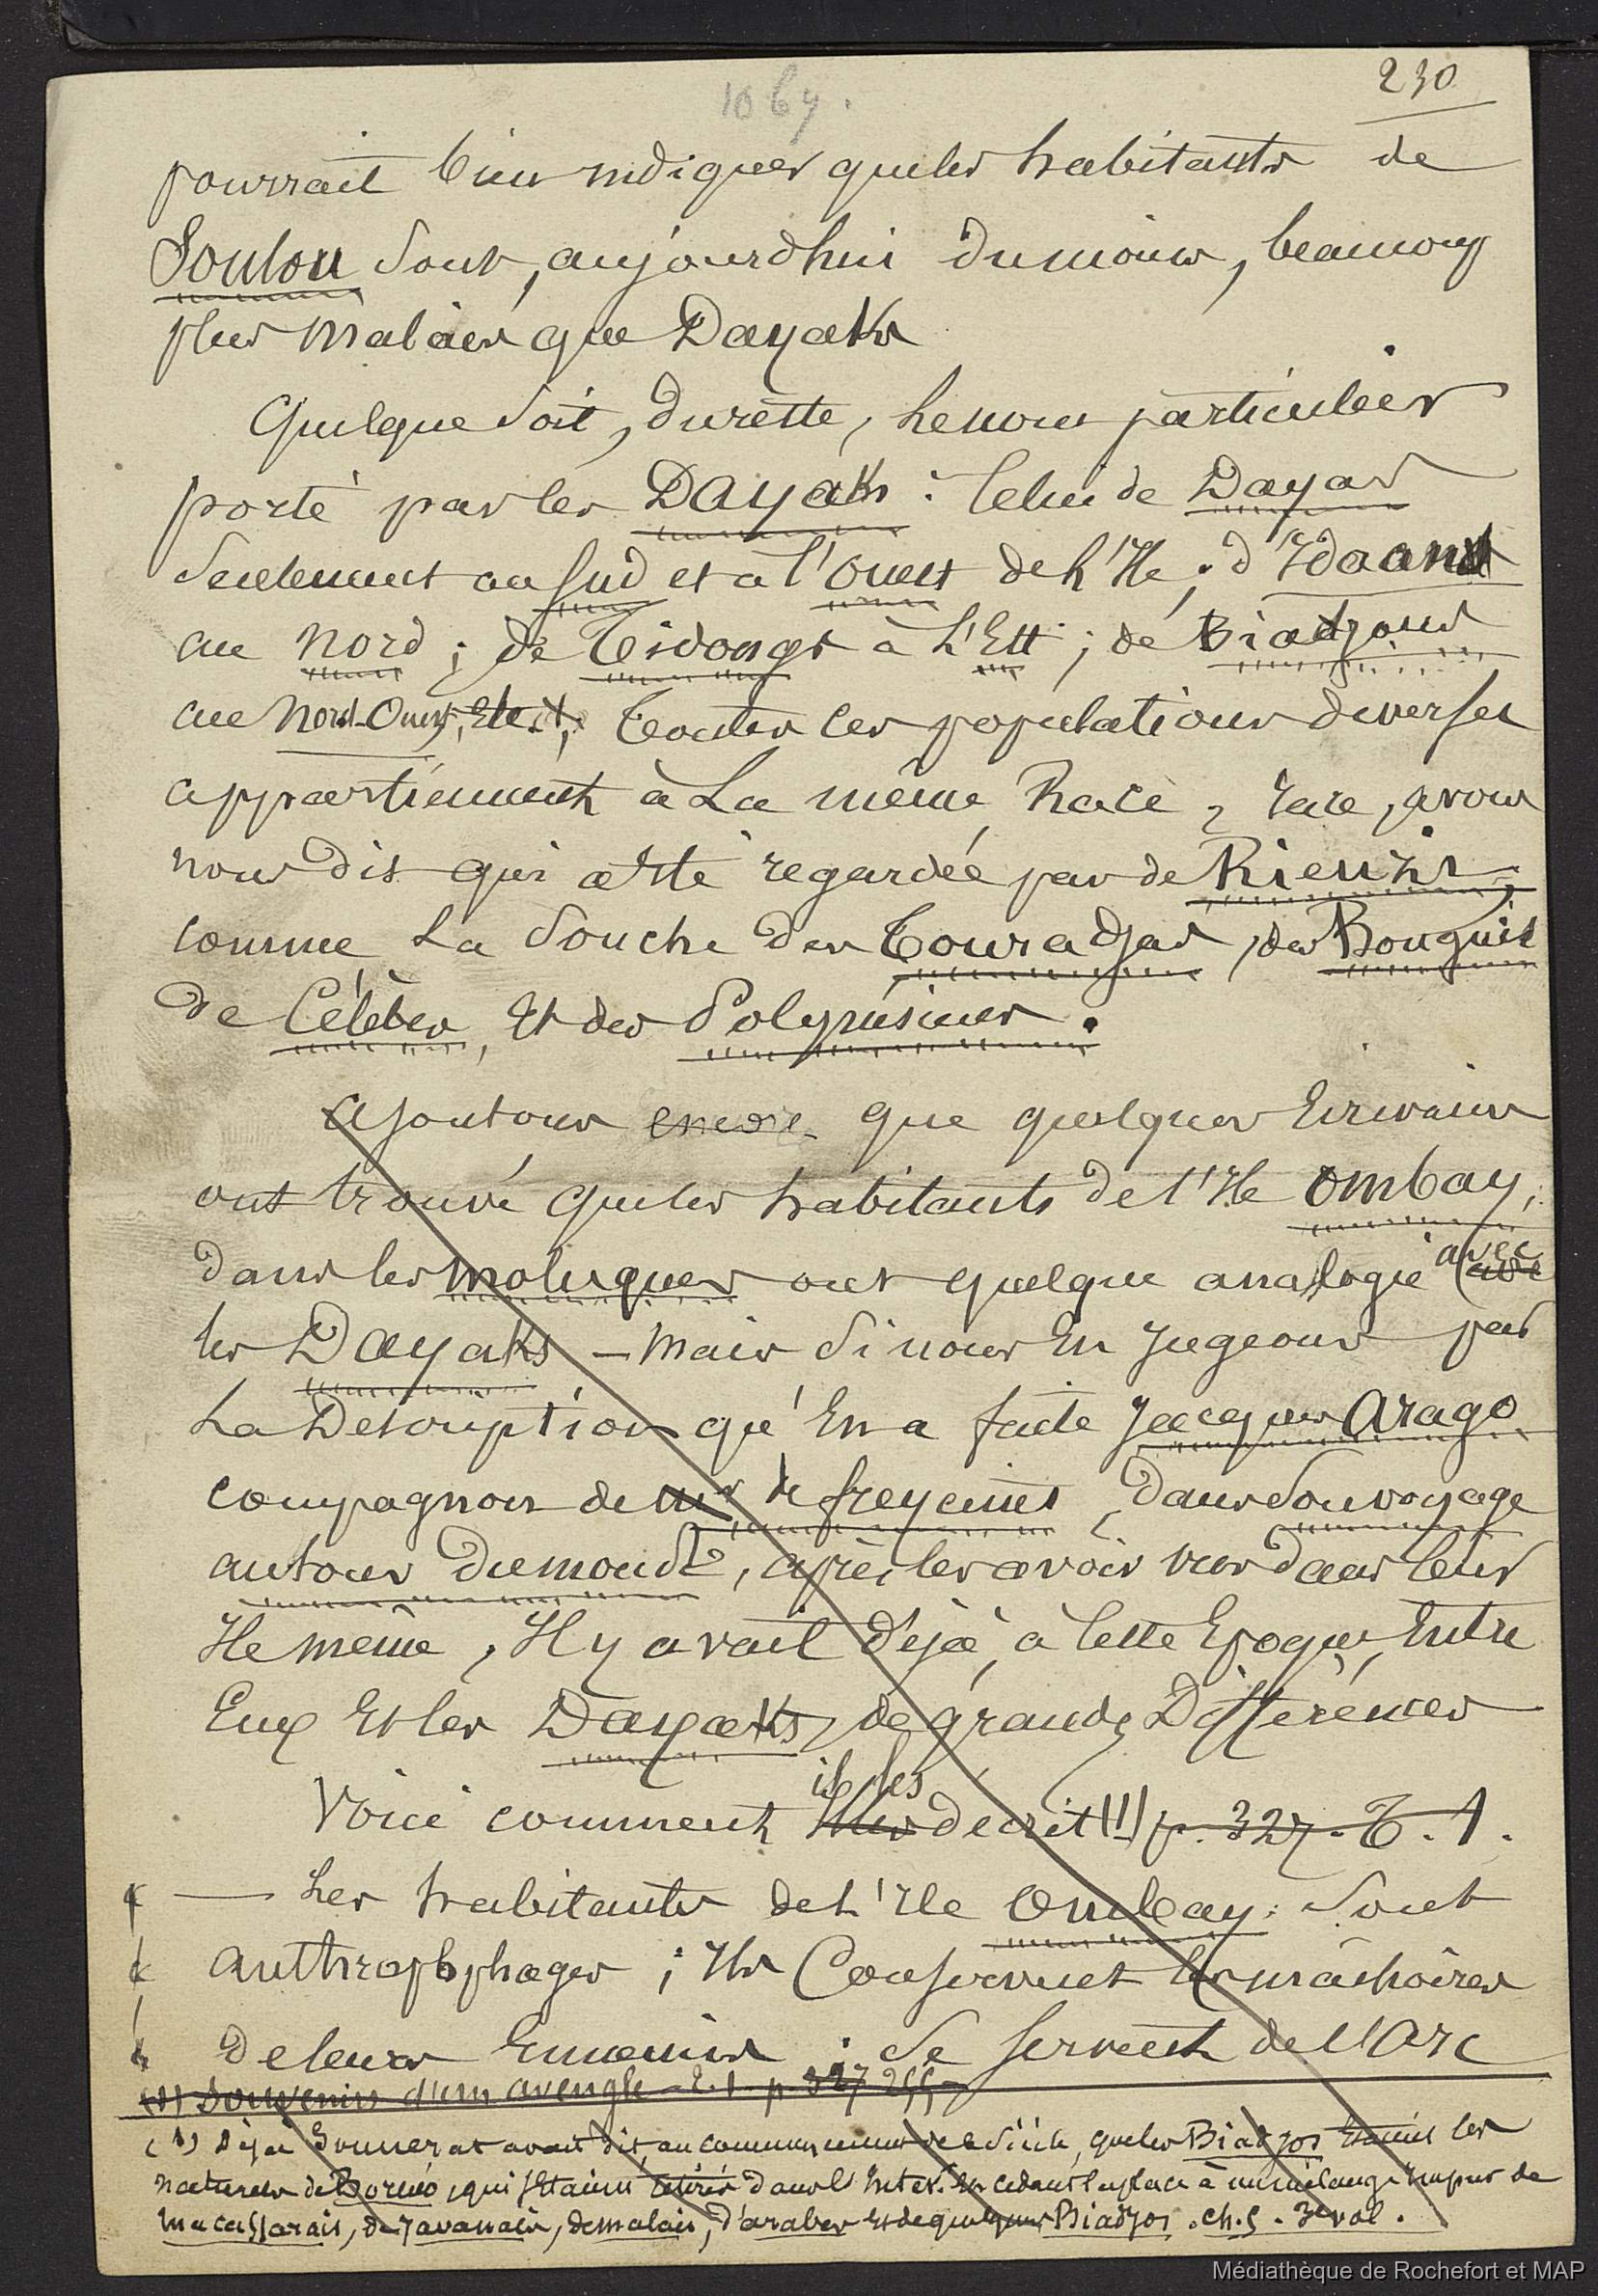 230
1069.
pourrait bien indiquer que les habitants de
Soulou sont, aujourdhui du moins, beaucoup
plus Malais que Dayaks
Quelque soit, du reste, le nom particulier
porté par les Dayaks : celui de Dayas
seulement au Sud et à l'ouest de l'Ile ; d'Idaans
au Nord ; de Tidongs à L'Est ; de Biadjous
au Nord-Ouest, Etc. toutes ces populations diverses
appartiennent à La même Race, race, avons
nous dit qui a été regardée par de Rienzi,
comme La souche des Touradjas, des Bouguis
de Célèbes, Et des Polynésiens.
Ajoutons encore que quelques Ecrivains
ont trouvé que les habitants de l'Ile Ombay,
dans les Moluques ont quelque analogie avec
les Dayaks – Mais si nous En jugeons par
La Description qu'En a faite Jacques Arago
compagnon de Mr de freycinet dans son voyage
autour du monde, après les avoir vus dans leur
Ile même, Il y avait déjà, à cette Epoque, Entre
Eux Et les Dayaks, de grandes Différences
Voici comment il les décrit (1) p. 327. T. 1.
— Les habitants de L'Ile Ombay sont
anthropophages ; Ils Conservent les mâchoires
de leurs Ennemis ; se servent de l'Arc
(1) Souvenirs d'un aveugle – T. 1. p. 327
(1) Déjà Sonnerat avait dit, au commencement de ce siècle, que les Biadjos Etaient les
naturels de Bornéo, qui s'Etaient retirés dans l'Inter. En cédant la place à un mélange impur de
Macassarais, de Javanais, de malais, d'arabes Et de quelques Biadjos . ch. 5 . 3e vol.
Médiathèque de Rochefort et MAP